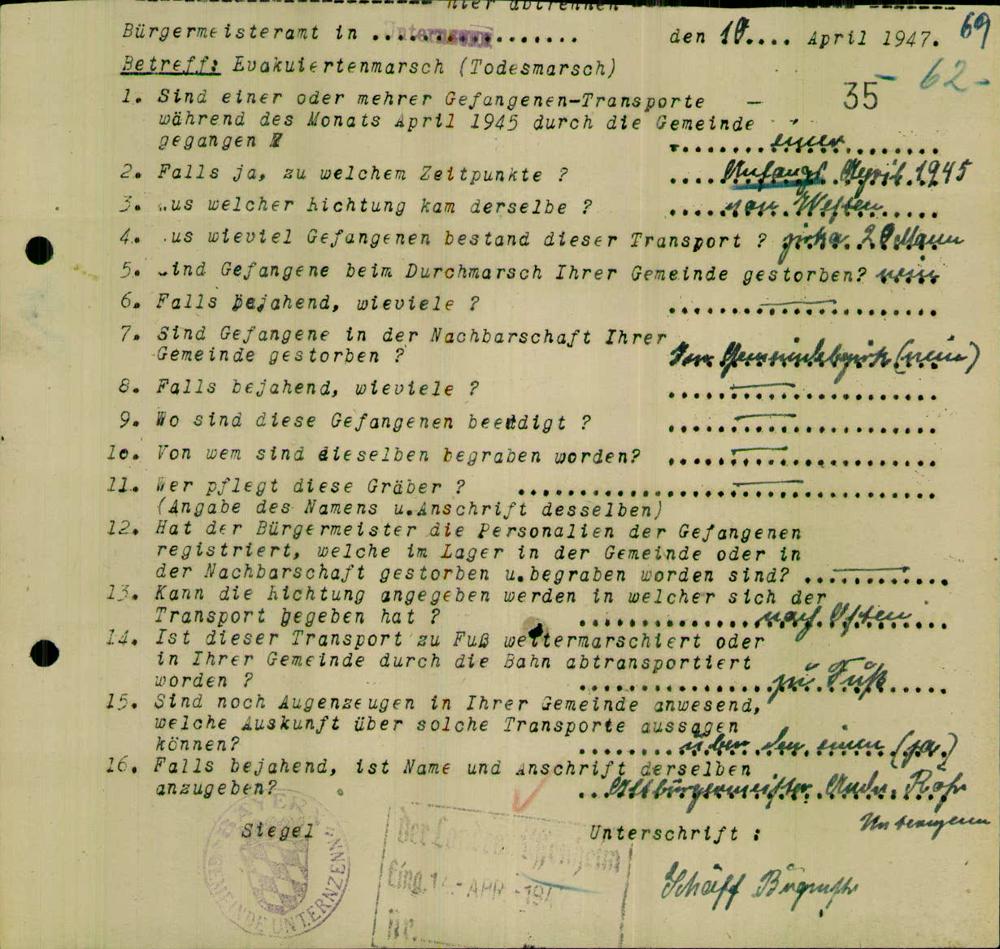 hier abtrennen
Bürgermeisteramt in ................ den 10.... April 1947. 69
Betreff: Evakuiertenmarsch (Todesmarsch) 62-
1. Sind einer oder mehrer Gefangenen-Transporte — 35
während des Monats April 1945 durch die Gemeinde
gegangen einer
2. Falls ja, zu welchem Zeitpunkte ? .... Anfangs April 1945
3. .us welcher Richtung kam derselbe ? von Westen
4. .us wieviel Gefangenen bestand dieser Transport ? zirka 20 Mann
5. .ind Gefangene beim Durchmarsch Ihrer Gemeinde gestorben? nein
6. Falls Bejahend, wieviele ? —
7. Sind Gefangene in der Nachbarschaft Ihrer
Gemeinde gestorben ? Im Gemeindebezirk (nein)
8. Falls bejahend, wieviele ? —
9. Wo sind diese Gefangenen beerdigt ? —
10. Von wem sind dieselben begraben worden? —
11. Wer pflegt diese Gräber ? —
(Angabe des Namens u.Anschrift desselben)
12. Hat der Bürgermeister die Personalien der Gefangenen
registriert, welche im Lager in der Gemeinde oder in
der Nachbarschaft gestorben u.begraben worden sind? —
13. Kann die Richtung angegeben werden in welcher sich der
Transport begeben hat ? nach Osten
14. Ist dieser Transport zu Fuß weitermarschiert oder
in Ihrer Gemeinde durch die Bahn abtransportiert
worden ? zu Fuß
15. Sind noch Augenzeugen in Ihrer Gemeinde anwesend,
welche Auskunft über solche Transporte aussagen
können? über den einen (ja)
16. Falls bejahend, ist Name und Anschrift derselben
anzugeben? Altbürgermeister Andr.
Siegel Unterschrift :
BAYERN
GEMEINDE UNTERNZENN
Der
Eing. 14. APR. 194
Nr.
Schäff